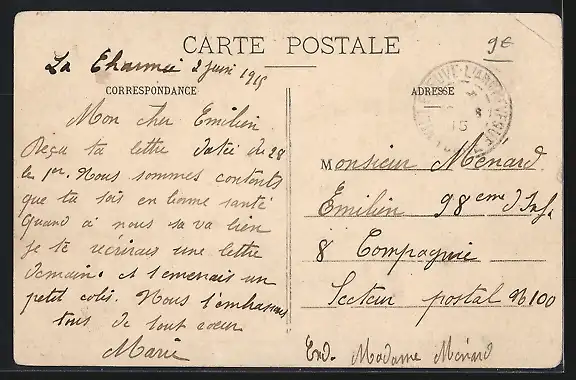 CARTE POSTALE
9€
La Charmée 2 Juin 1915
CORRESPONDANCE
ADRESSE
Mon cher Emilien
Reçu ta lettre datée du 28
le 1er. Nous sommes contents
que tu sois en bonne santé
Quand à nous sa va bien
Je te récrirais une lettre
demain. et t'emenais un
petit colis. Nous t'embrassons
tous de tout coeur
Marie
Monsieur Ménard
Emilien 98eme d'Inf.
8 Compagnie
Secteur postal N 100
15
Exd. Madame Ménard